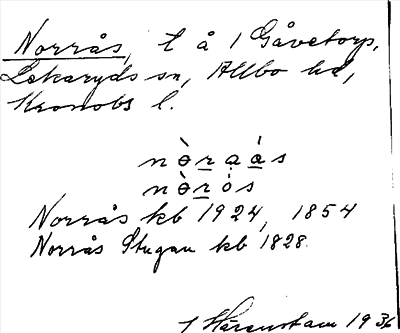 Norrås, t å 1 Gåvetorp,
Lekaryds sn, Allbo hd,
Kronobs l.
nòraás
nòrós
Norrås kb 1924, 1854
Norrås Stugan kb 1828.
1936